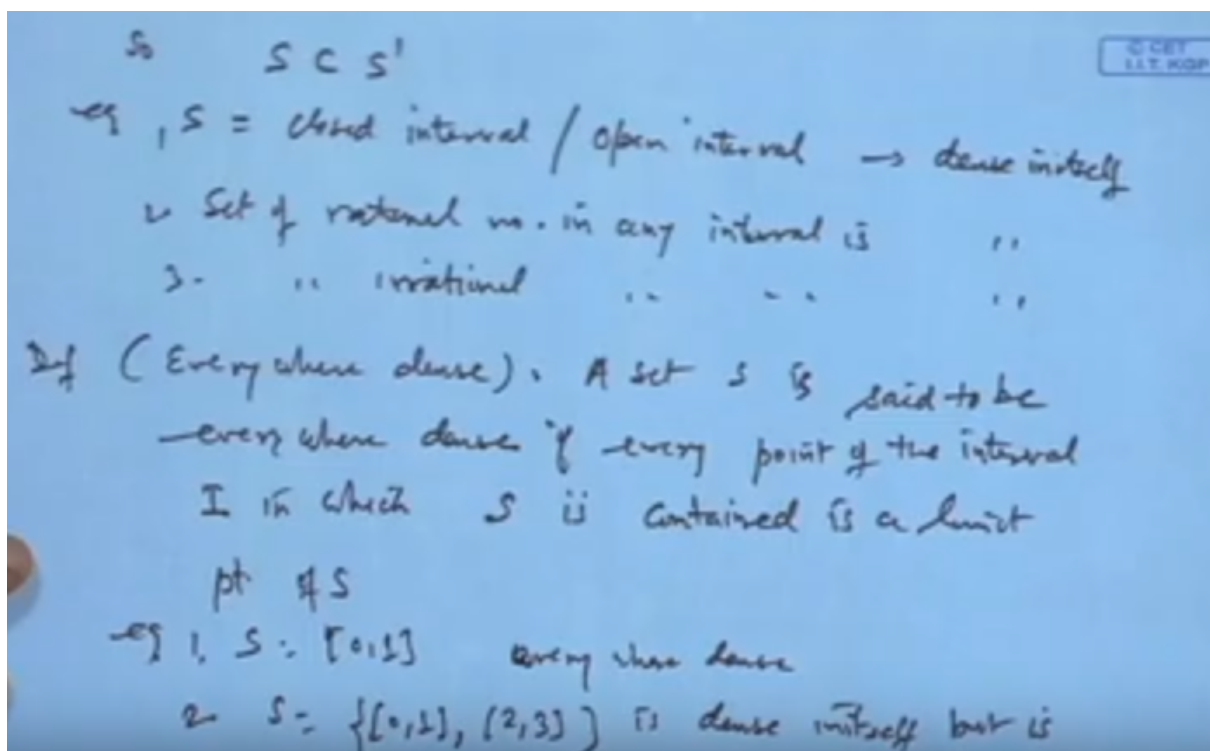 So S ⊂ S'
© CET
I.I.T. KGP
eg 1, S = closed interval / open interval → dense in itself
2 Set of rational no. in any interval is ,,
3. ,, irrational ,, ,, ,,
Def (Everywhere dense). A set S is said to be
everywhere dense if every point of the interval
I in which S is contained is a limit
pt of S
eg 1. S = [0,1] every where dense
2 S = {[0,1], (2,3]} is dense in itself but is